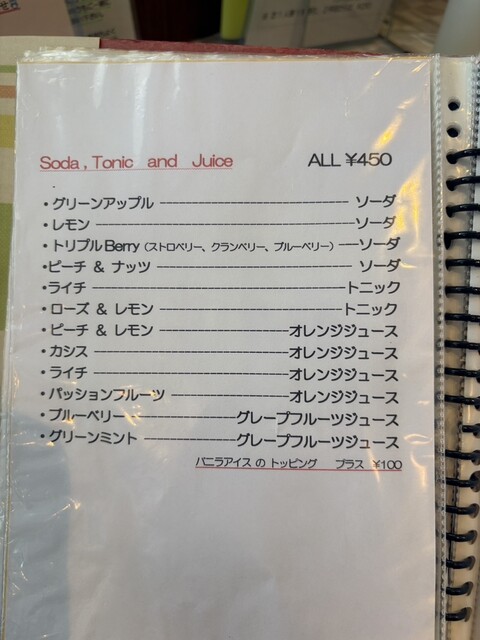 Soda , Tonic and Juice ALL ¥450
・グリーンアップル ------------------------ ソーダ
・レモン ------------------------ ソーダ
・トリプルBerry（ストロベリー、クランベリー、ブルーベリー）---ソーダ
・ピーチ & ナッツ ------------------------ ソーダ
・ライチ ------------------------ トニック
・ローズ & レモン ------------------------ トニック
・ピーチ & レモン ------------------オレンジジュース
・カシス ------------------------オレンジジュース
・ライチ ------------------------オレンジジュース
・パッションフルーツ ---------------オレンジジュース
・ブルーベリー --------------グレープフルーツジュース
・グリーンミント ------------グレープフルーツジュース
バニラアイス の トッピング プラス ¥100